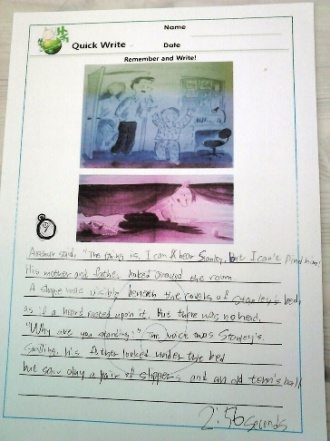 Quick Write
Name
Date
Remember and Write!
Arthur said, "The thing is, I can hear Stanley, but I can't find him."
His mother and father looked around the room
A shape was visible beneath the covers of Stanley's bed,
as if a head rested upon it. But there was no head.
"Why are you standing" The voice was Stanley's.
his father looked under the bed
but saw only a pair of slippers and an old tennis ball
2:56 seconds